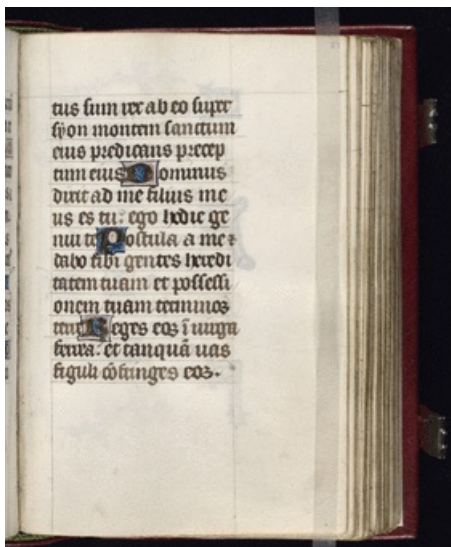 tus sum rex ab eo super
syon montem sanctum
eius predicans precep
tum eius Dominus
dixit ad me filius me
us es tu: ego hodie ge
nui te Postula a me ⁊
dabo tibi gentes heredi
tatem tuam et possessi
onem tuam terminos
terre Reges eos ī uirga
ferrea: et tanquā uas
figuli cōfringes eos.